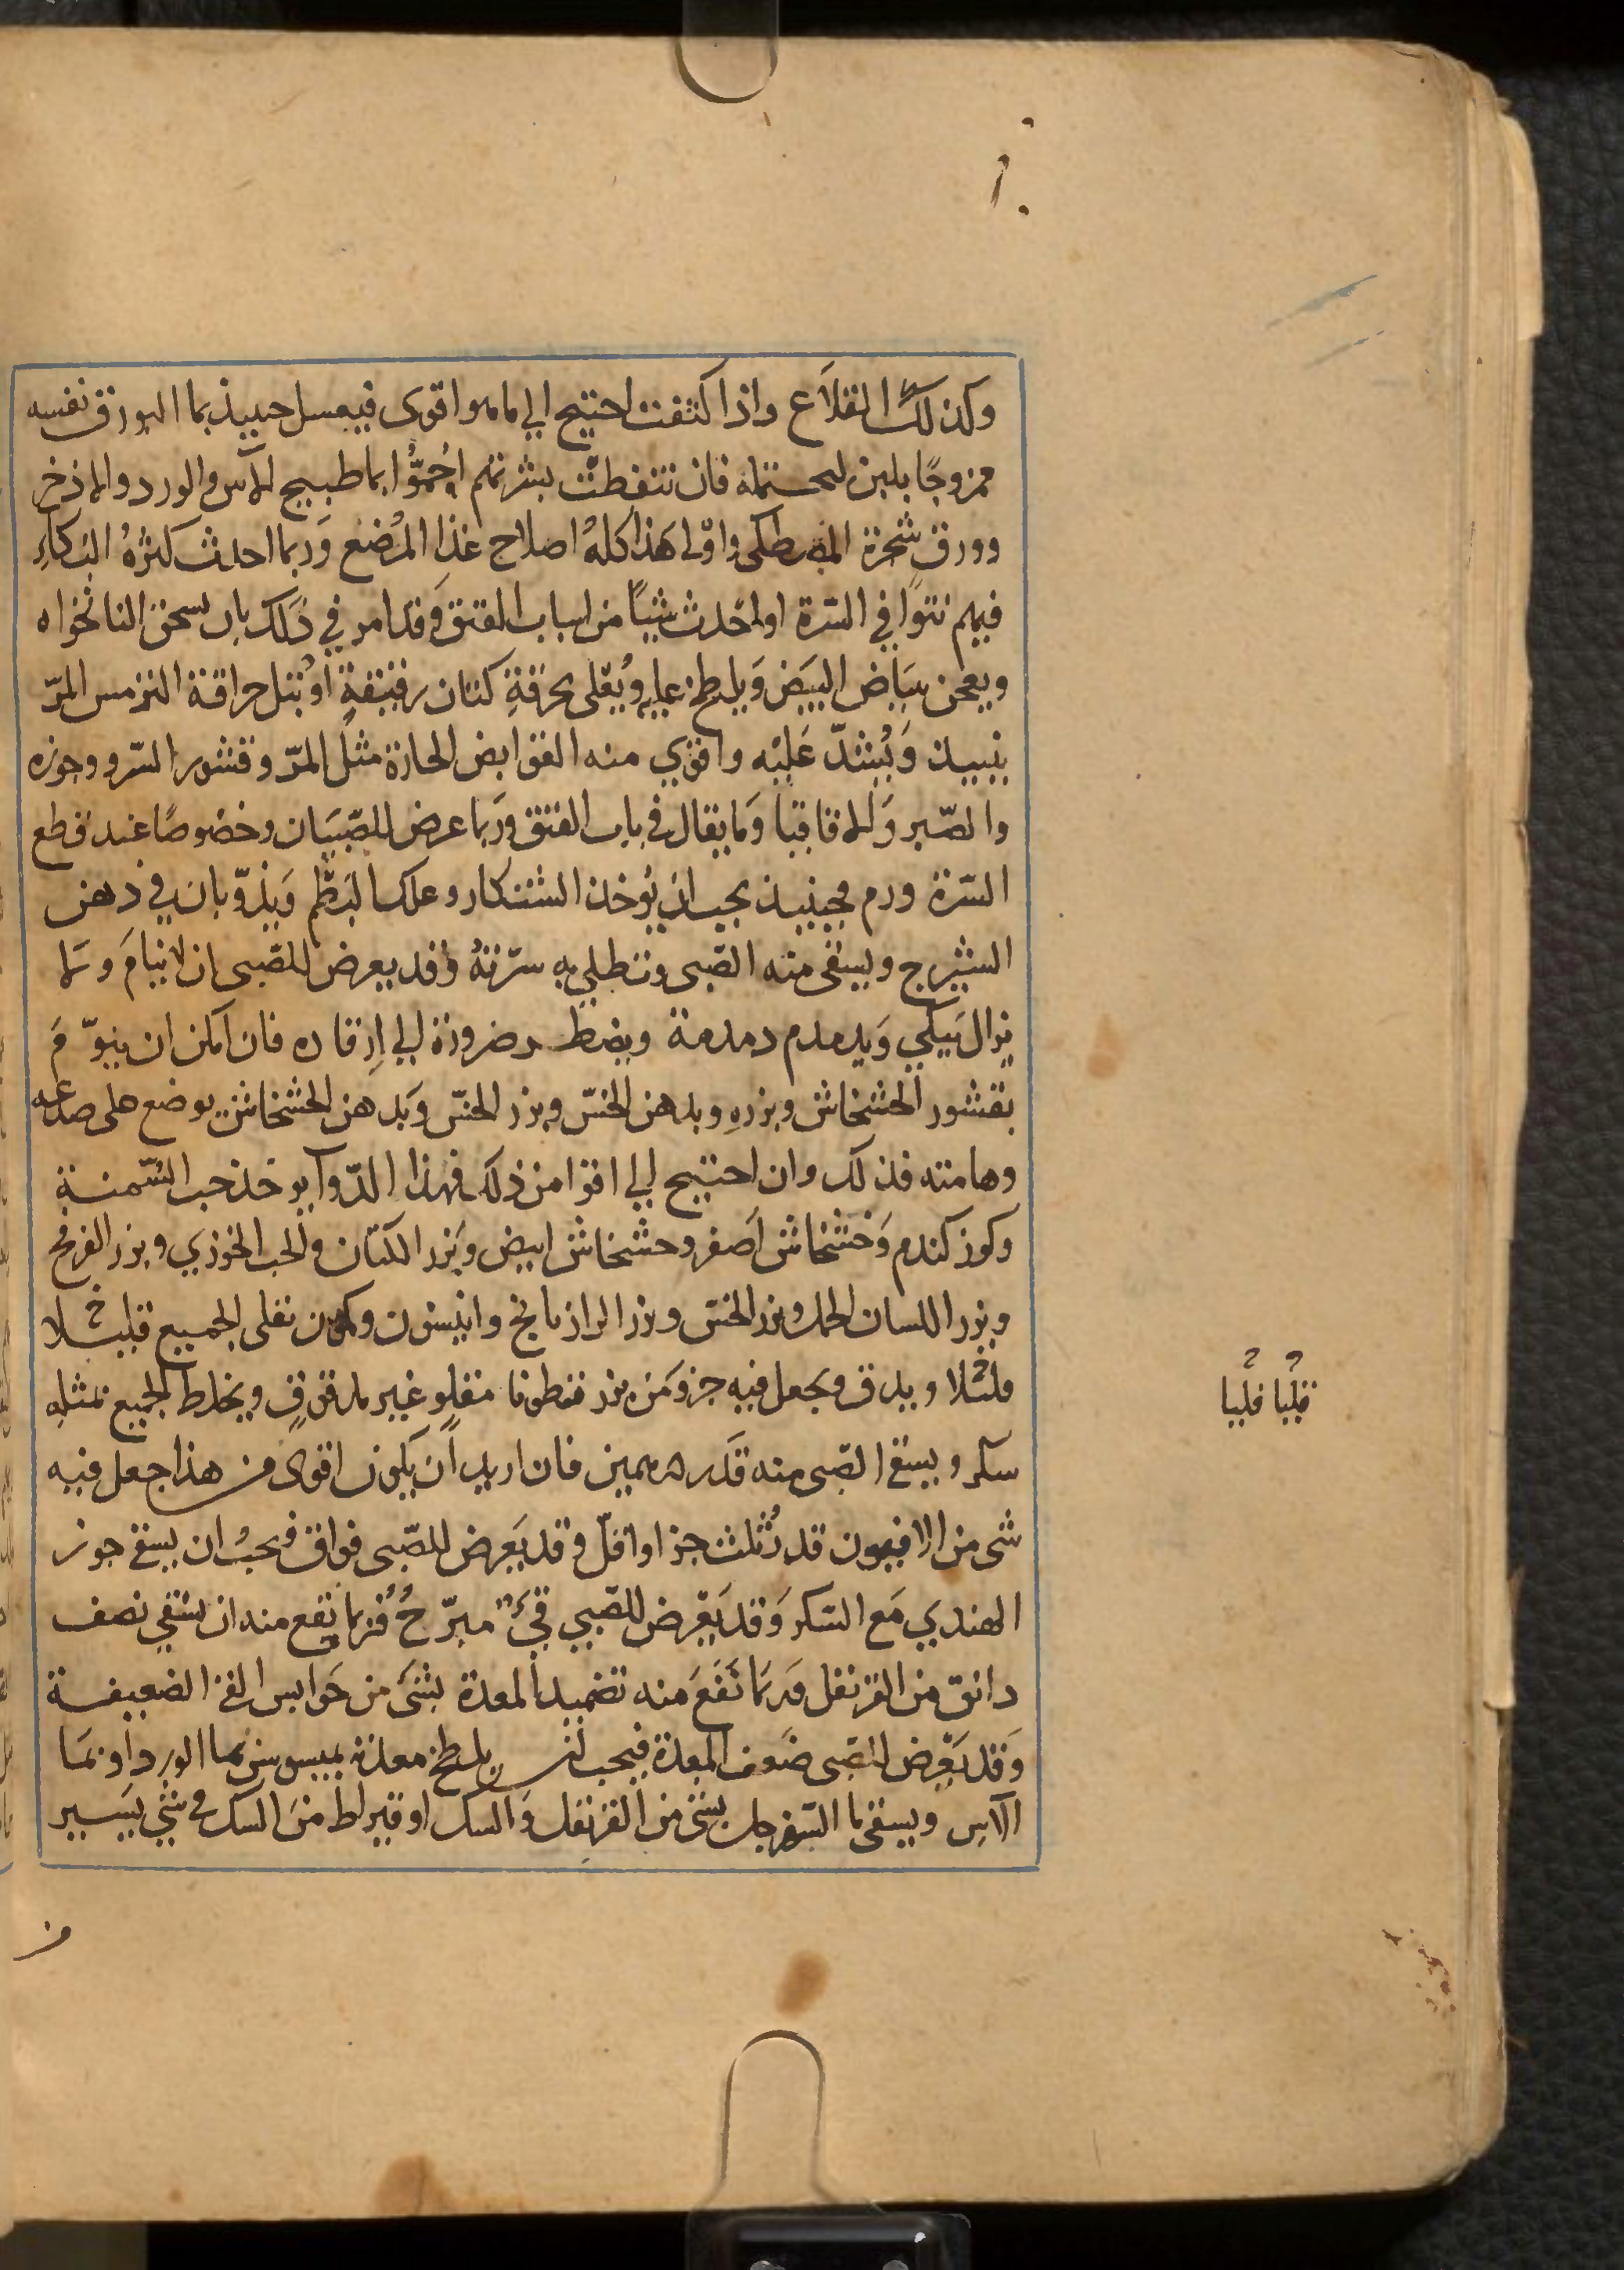 وكذلك القلاع واذا كثفت احتيج الي ماهو اقوى فيغسل حينيذ بما البورق نفسه
ممزوجًا بلبن ليحتمله فان تنفطت بثرتهم احُمّوُا بما طبيخ الآس والورد والاذخر
وورق شجرة المصطكى واوْلى هَذا كله اصلاح غذا المرُضع وَربما احدث كثرهُ البُكاءِ
فيهم نتوا في السّرة او احدث شيئًا من اسباب الفتق وَقد امر في ذلك بان يسحق النانخواه
ويعجن ببَياض البيَض وَيلطخ عليه ويُعْلى بخرقةِ كتان رقيقةٍ اوْ تبل حراقة الترمس المرّ
بنبيذ وَيُشدّ عَليْه واقوي منه القوابض الحارة مثل المرّ وقشور السّرو وجوزه
والصّبر وَالاقاقيا وَما يقال في باب الفتق وربما عرض للصّبيَان وخصوصًا عند قطع
السّرة ورم فحينيذ يجب ان يُوخذ الشنكار وعلك البطم وَيذوّبان في دهن
الشيرج ويسقى منه الصّبى وتطلي به سرّتهُ وَقد يعرض للصّبى ان لا ينامَ ولا
يزال يَبكي وَيدمدم دمدمة ويضطر ضرورة الي اِرقاده فان امكن ان ينوّمَ
بقشور الخشخاش وبزرهِ وبدهن الخسّ وبزر الخسّ وَبدهن الخشخاش يوضع على صدغه
وهامته فذلك وان احتيج الي اقوا من ذلك فهذا الدّوآ يوخذ حب السّمنة
وكوزكندم وَخشخاش اَصفر وخشخاش ابيض وَبزر الكتان والحب الخوزي وبزر الفرفخ
وبزر اللسان الحمل وبزر الخسّ وبزر الرازيانج وانيسون وكمون تقلى الجميع قليلا
قليلا ويدق ويجعل فيه جزو مَن بزر قطونا مقلو غير مدقوقٍ ويخلط الجميع بمثله
سكر ويسقى الصّبى منه قَدر درهمين فان اريد ان يكون اقوى من هذا جعل فيه
شى من الافيون قدر ثُلث جز او اقلّ وقد يَعرض للصّبى فواق فيجبُ ان يسقى جوز
الهندي مَع السّكر وَقد يَعْرض للصّبي قيْء مبرّحُ فُربما نفع منه ان يسقي نصف
دانق من القرنفل وَربمَا نَفَعَ منه تضميد المعدة بشىَ من حَوابس القى الضعيفة
وَقد يَعْرض للصّبى ضعف المعدة فيجب ان يلطخ معدته بميسوسن بما الورد او بمَا
الآسِ ويسقى ما السّفرجل بشى من القرنفل وَالسك او قيراط منَ السك في شئ يَسير
قليًا قليًا
من